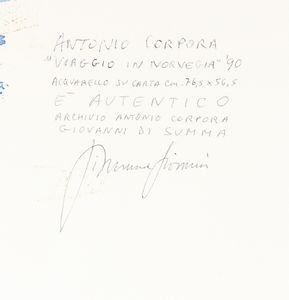 ANTONIO CORPORA
"VIAGGIO IN NORVEGIA" '90
ACQUARELLO SU CARTA cm. 76,5 x 56,5
E' AUTENTICO
ARCHIVIO ANTONIO CORPORA
GIOVANNI DI SUMMA